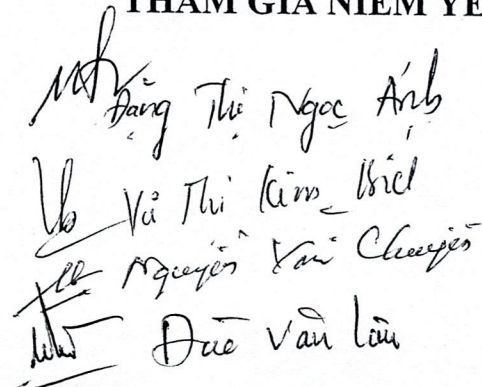 THAM GIA NIÊM YẾ
Đặng Thị Ngọc Ánh
Vũ Thị Kim Bích
Nguyễn Văn Chuyển
Văn